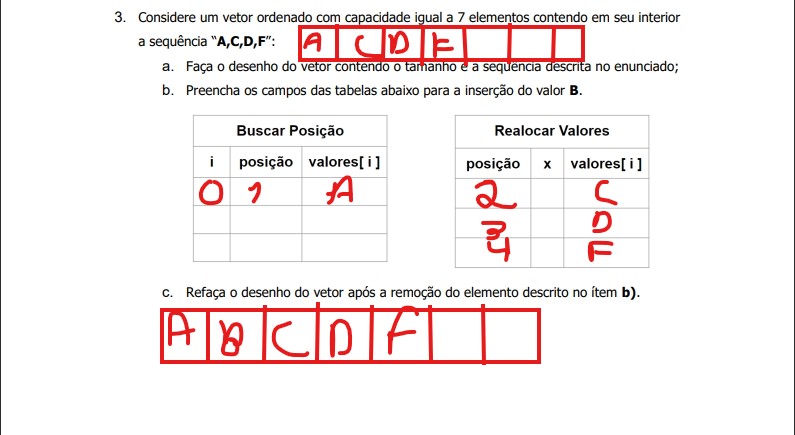 3. Considere um vetor ordenado com capacidade igual a 7 elementos contendo em seu interior
a sequência “A,C,D,F”:
A C D F
a. Faça o desenho do vetor contendo o tamanho e a sequência descrita no enunciado;
b. Preencha os campos das tabelas abaixo para a inserção do valor B.
Buscar Posição
i posição valores[ i ]
0 1 A
Realocar Valores
posição x valores[ i ]
2 C
3 D
4 F
c. Refaça o desenho do vetor após a remoção do elemento descrito no ítem b).
A B C D F